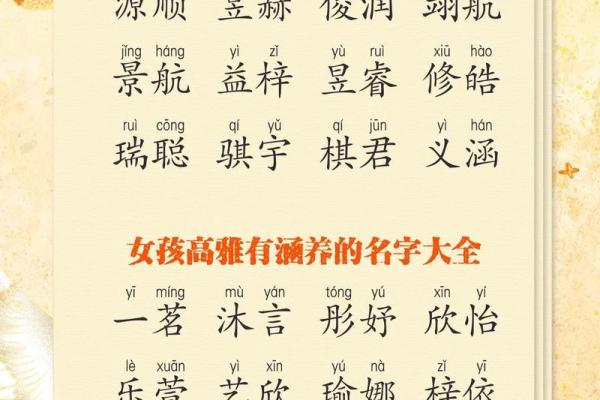 源顺 昱赫 俊润 翊航
jǐng háng yì zǐ yù ruì xiū hào
景航 益梓 昱睿 修皓
ruì cōng qí yǔ qí jūn yì hán
瑞聪 骐宇 棋君 义涵
女孩高雅有涵养的名字大全
yī míng mù yán tóng yú xīn yí
一茗 沐言 彤妤 欣怡
lè xuān yì xīn yú nà zǐ yī
乐萱 艺欣 瑜娜 梓依